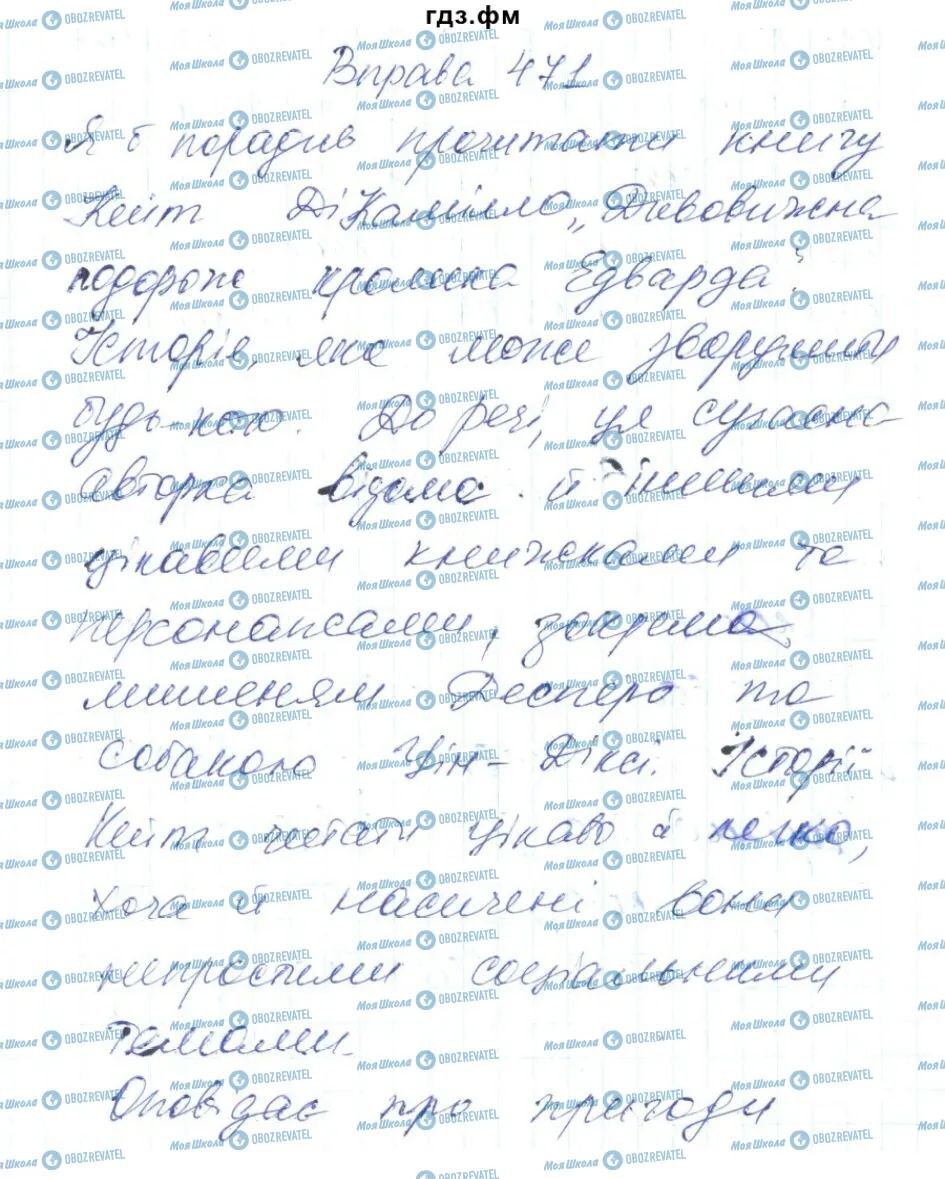 гдз.фм
Вправа 471
Я б порадив прочитати книгу
Кейт ДіКамілло „Дивовижна
подорож кролика Едварда".
Історія, яка може зворушити
будь-кого. До речі, ця сучасна
авторка відома й іншими
цікавими книжками та
персонажами, зокрема
мишеням Десперо та
собакою Він-Діксі. Історії
Кейт читати цікаво й легко,
хоча й насичені вони
непростими соціальними
темами.
Оповідає про пригоди